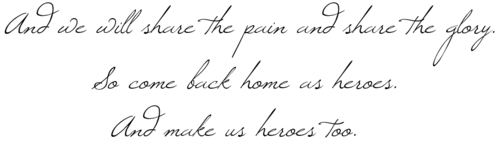 And we will share the pain and share the glory.
So come back home as heroes.
And make us heroes too.